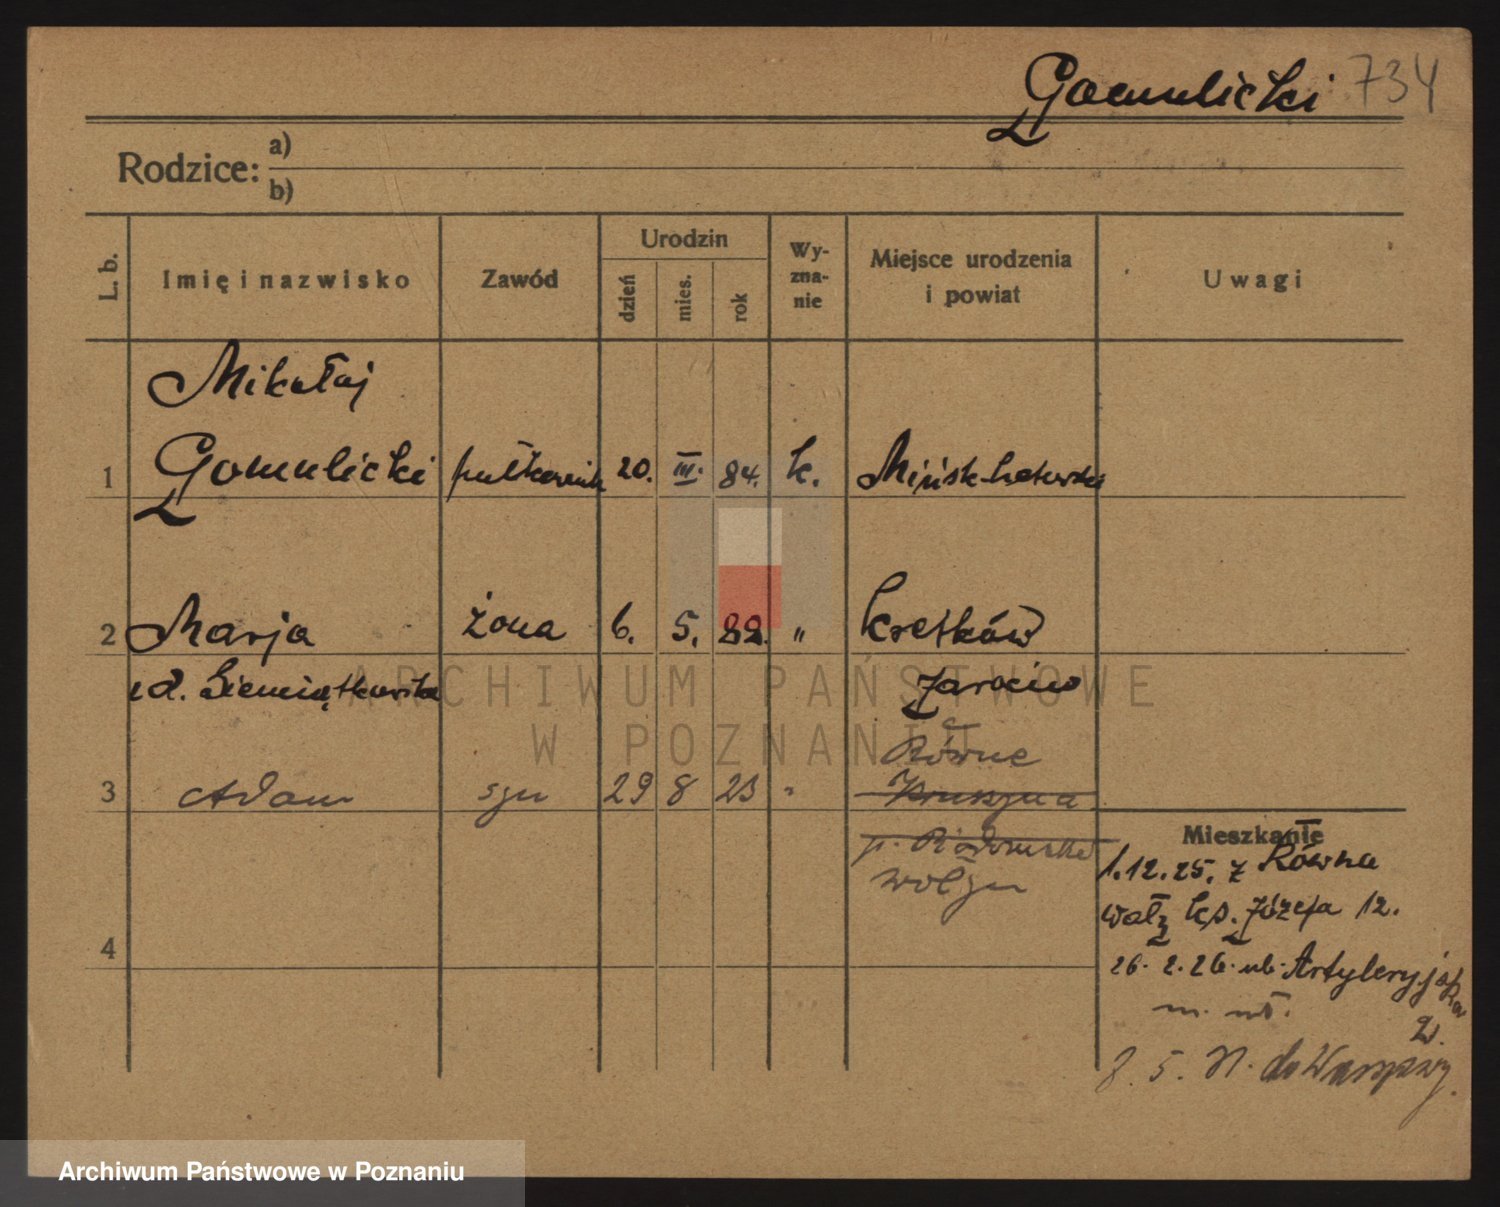 Gomulicki 734
Rodzice: a)
b)
L. b.
Imię i nazwisko
Zawód
Urodzin
dzień
mies.
rok
Wy-
zna-
nie
Miejsce urodzenia
i powiat
Uwagi
Mikołaj
1 Gomulicki pułkownik 20. III. 84. k. Mińsk-Litewski
2 Marja żona 6. 5. 82. " Kretków
zd. Siemiątkowska Jarocin
Równe
3 Adam syn 29 8 23 "
Mieszkanie
1.12.25. z Równa
Wałz ks. Józefa 12.
4
26. 2. 26. ul. Artyleryjska
2.
m. wł.
8. 5. do Warszawy.
ARCHIWUM PAŃSTWOWE
W POZNANIU
Archiwum Państwowe w Poznaniu